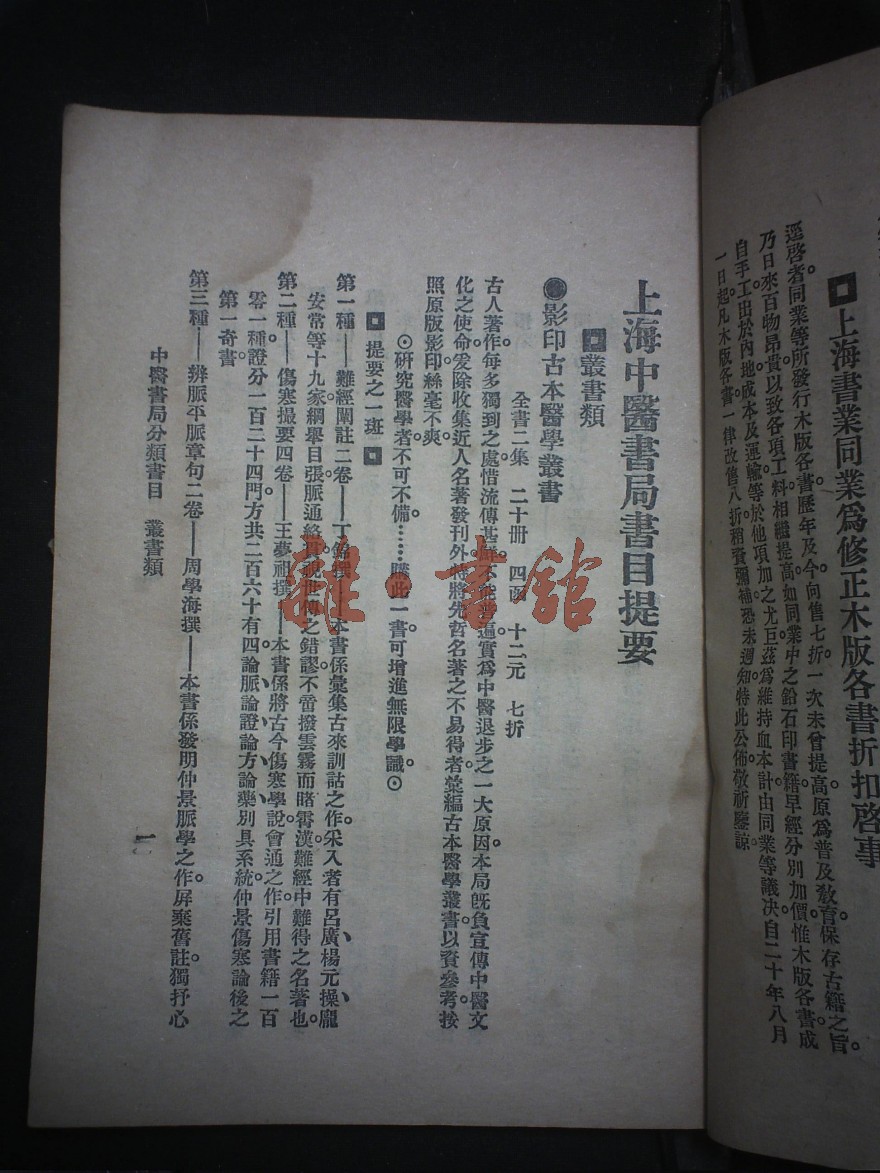 上海書業同業爲修正木版各書折扣啓事
逕啓者同業等所發行木版各書歷年及今向售七折一次未曾提高原爲普及敎育。保存古籍之旨。
乃日來百物昂貴以致各項工料相繼提高。如同業中之鉛石印書籍早經分別加價惟木版各書成
自手工出於內地成本及運輸等於他項加之尤巨茲爲維持血本計由同業等議决自二十年八月
一日起凡木版各書一律改售八折稍資彌補恐未週知特此公佈敬祈鑒諒。
上海中醫書局書目提要
叢書類
影印古本醫學叢書
全書二集 二十册 四函 十二元 七折
古人著作。每多獨到之處惜流傳甚 不 實爲中醫退步之一大原因。本局旣負宣傳中醫文
化之使命。爰除收集近人名著發刊外。特將先哲名著之不易得者。彙編古本醫學叢書。以資參考。按
照原版影印。絲毫不爽。
⊙研究醫學者。不可不備……購此一書。可增進無限學識。⊙
提要之一斑
第一種——難經闡註二卷——丁錦撰——本書係彙集古來訓詁之作。采入者有呂廣、楊元操、龐
安常等十九家。綱舉目張。脈通絡貫。視世傳之錯謬。不啻撥雲霧而瞻霄漢。難經中難得之名著也。
第二種——傷寒撮要四卷——王夢祖撰——本書係將古今傷寒學說會通之作。引用書籍一百
零一種。證分一百二十四門。方共二百六十有四。論脈、論證、論方、論藥、別具系統。仲景傷寒論後之
第一奇書。
第三種——辨脈平脈章句二卷——周學海撰——本書係發明仲景脈學之作。屏棄舊註。獨抒心
中醫書局分類書目 叢書類
一
雜·書館